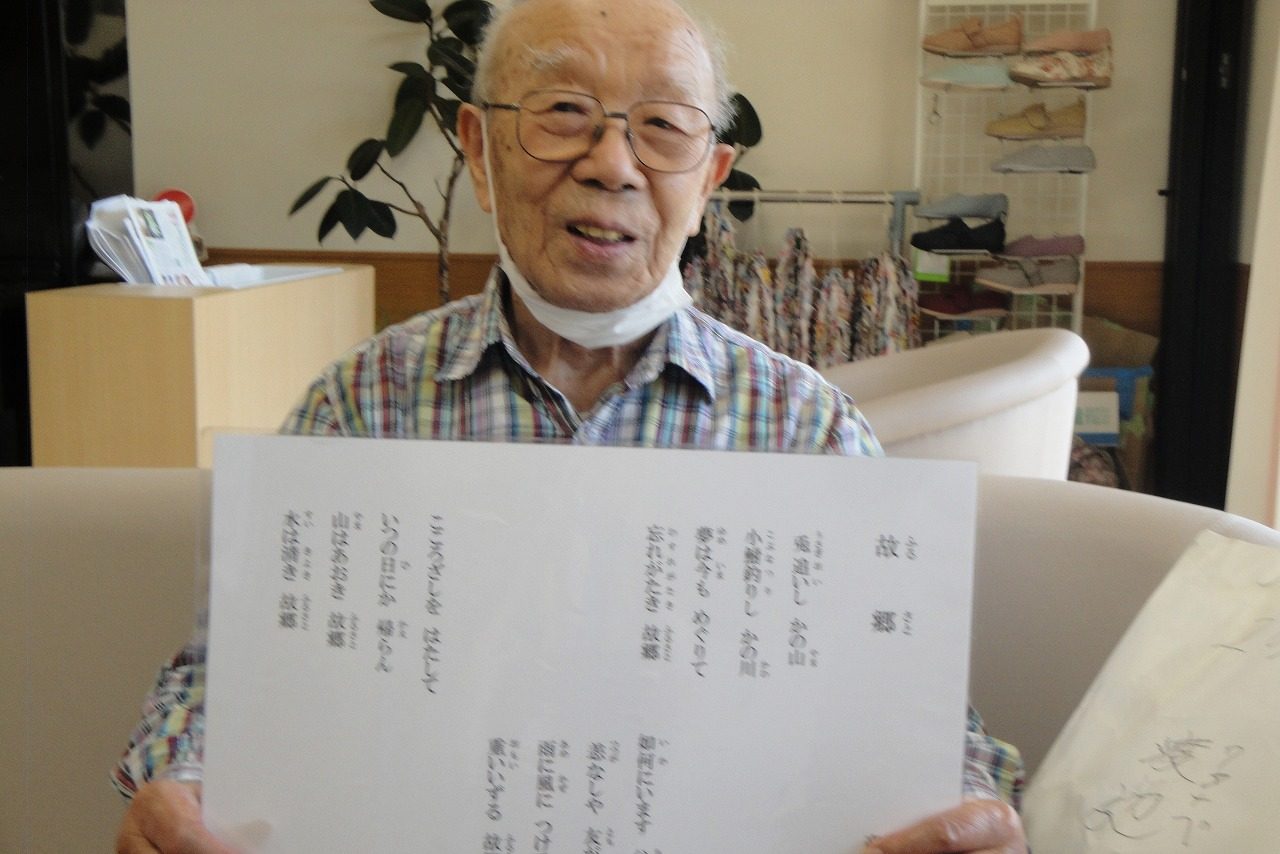 故郷
兎追いし かの山
小鮒釣りし かの川
夢は今も めぐりて
忘れがたき 故郷
如何にいます
恙なしや 友
雨に風に つけ
重いいずる 故
こころざしを はたして
いつの日にか 帰らん
山はあおき 故郷
水は清き 故郷